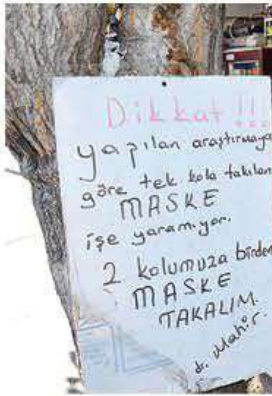 Dikkat !!!
yapılan araştırmaya
göre tek kola takılan
MASKE
işe yaramıyor.
2 kolumuza birden
MASKE
TAKALIM.
dr. Mahir.